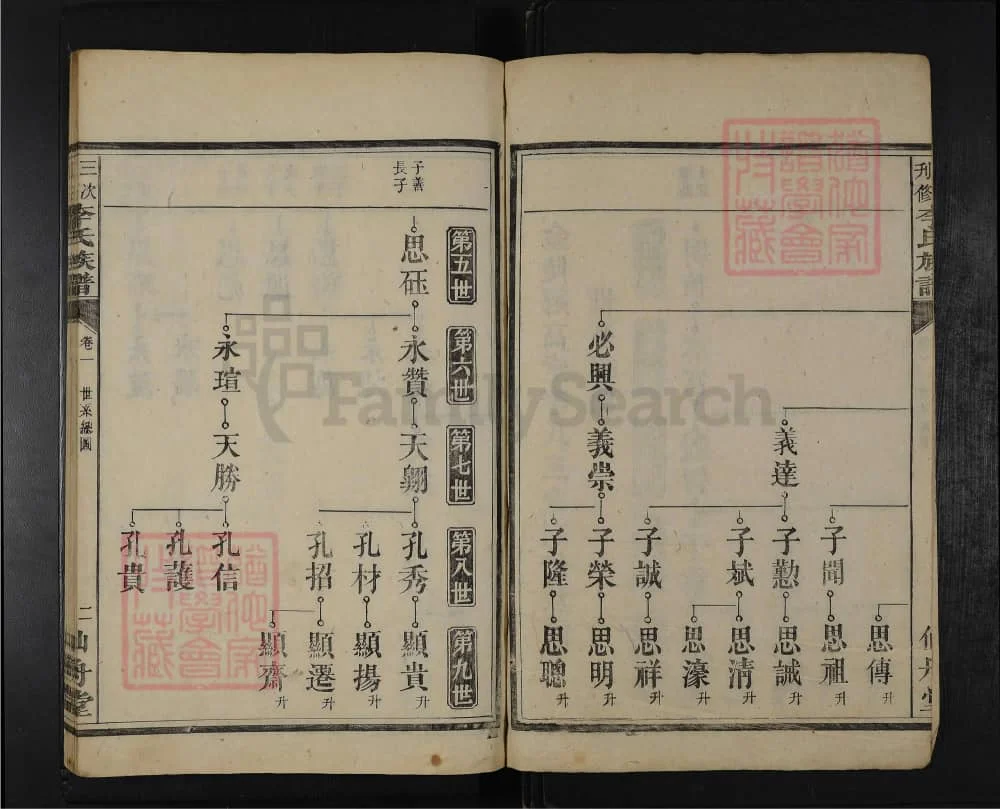 刋修李氏族譜
仙舟堂
思傳
升
子聞
思祖
升
義達
子懃
思誠
升
子斌
思清
升
思濠
升
子誠
思祥
升
必興
義崇
子榮
思明
升
子隆
思聰
升
第五世
第六世
第七世
第八世
第九世
子善
長子
思砡
永贊
天翱
孔秀
顯貴
升
孔材
顯揚
升
孔招
顯遷
升
顯齋
升
永瑄
天勝
孔信
孔護
孔貴
三次
李氏族譜
卷一
世系総圖
二
仙舟堂
FamilySearch